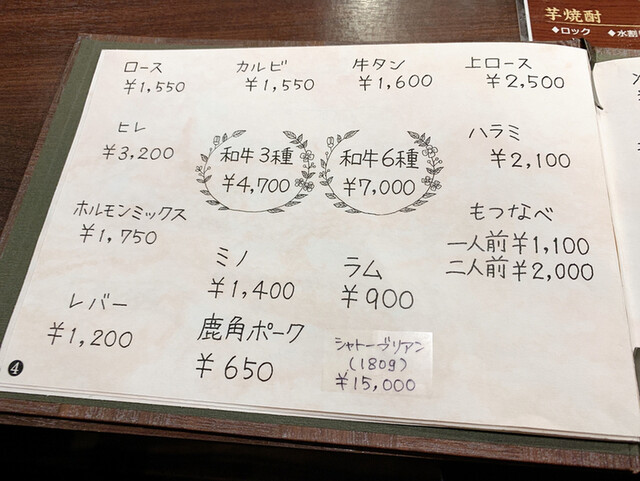 芋焼酎
◆ロック ◆水割
ロース
¥1,550
カルビ
¥1,550
牛タン
¥1,600
上ロース
¥2,500
ヒレ
¥3,200
和牛3種
¥4,700
和牛6種
¥7,000
ハラミ
¥2,100
ホルモンミックス
¥1,750
ミノ
¥1,400
ラム
¥900
もつなべ
一人前¥1,100
二人前¥2,000
レバー
¥1,200
鹿角ポーク
¥650
シャトーヴリアン
(180g)
¥15,000
4